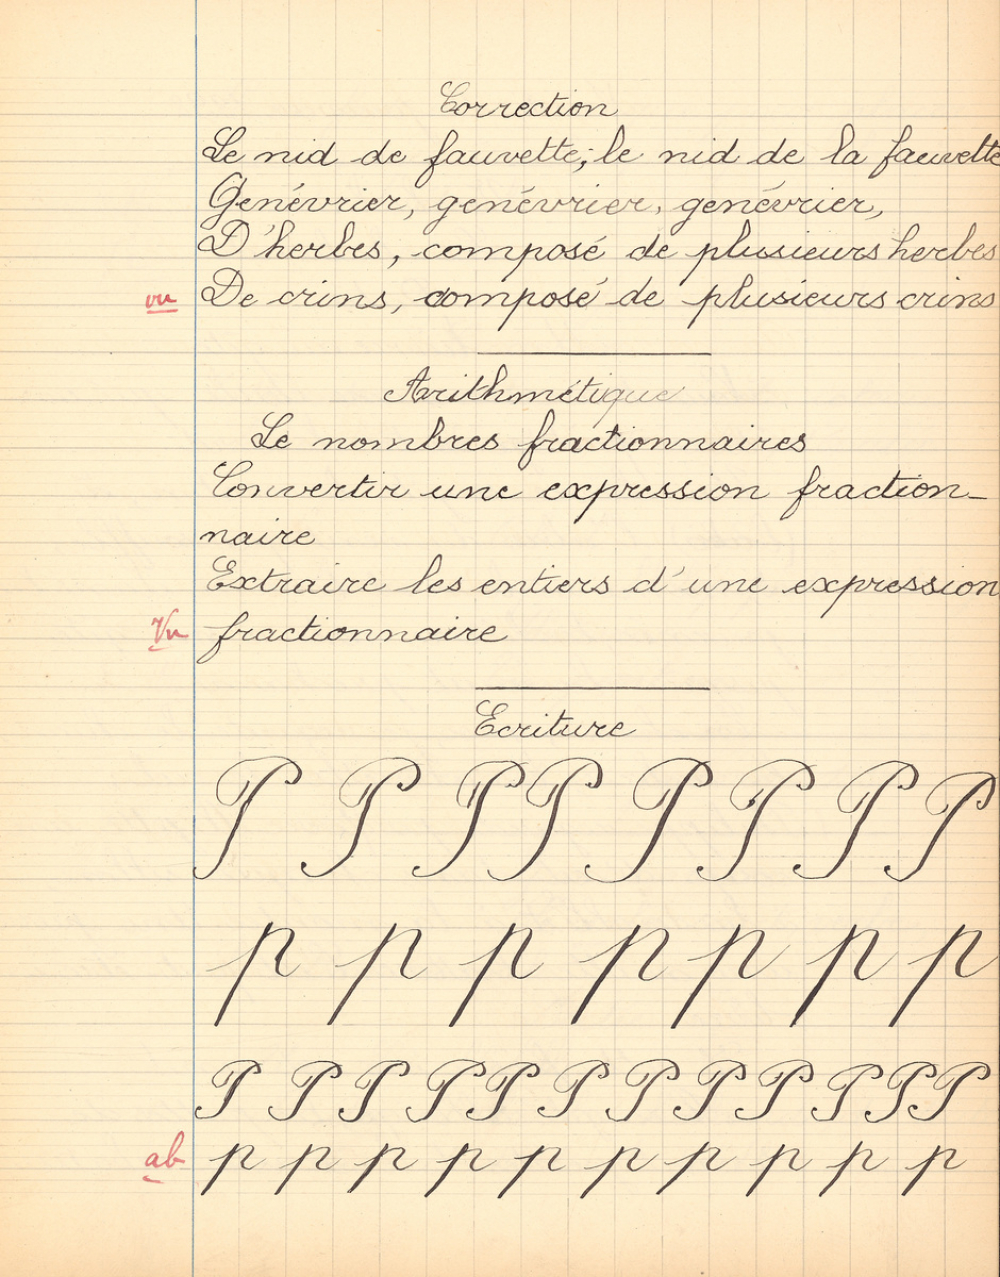 Correction
Le nid de fauvette; le nid de la fauvette
Genévrier, genévrier, genévrier,
D'herbes, composé de plusieurs herbes
vu De crins, composé de plusieurs crins
Arithmétique
Le nombres fractionnaires
Convertir une expression fraction-
naire
Extraire les entiers d'une expression
Vu fractionnaire
Ecriture
P P P P P P P P
p p p p p p p
P P P P P P P P P P P P
ab p p p p p p p p p p